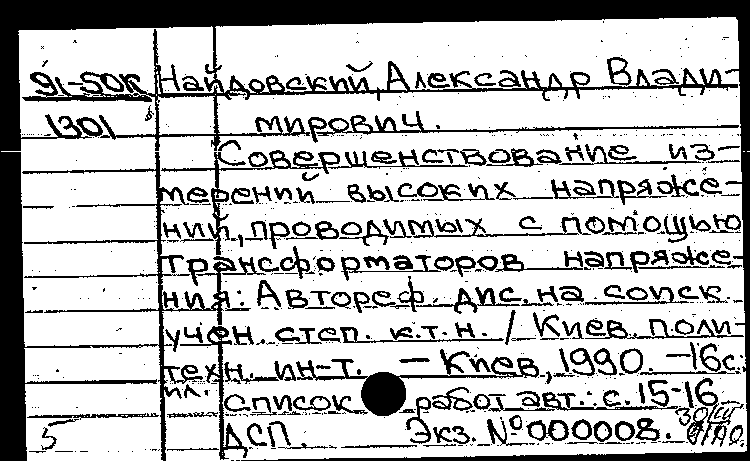 91-50к Найдовский, Александр Влади-
1301 мирович.
Совершенствование из-
мерений высоких напряже-
ний, проводимых с помощью
трансформаторов напряже-
ния: Автореф. дис. на соиск.
учен. степ. к.т.н. / Киев. поли-
техн. ин-т. — Киев, 1990. — 16с.
ил.
список работ авт.: с. 15-16
5 ДСП. Экз. № 000008.